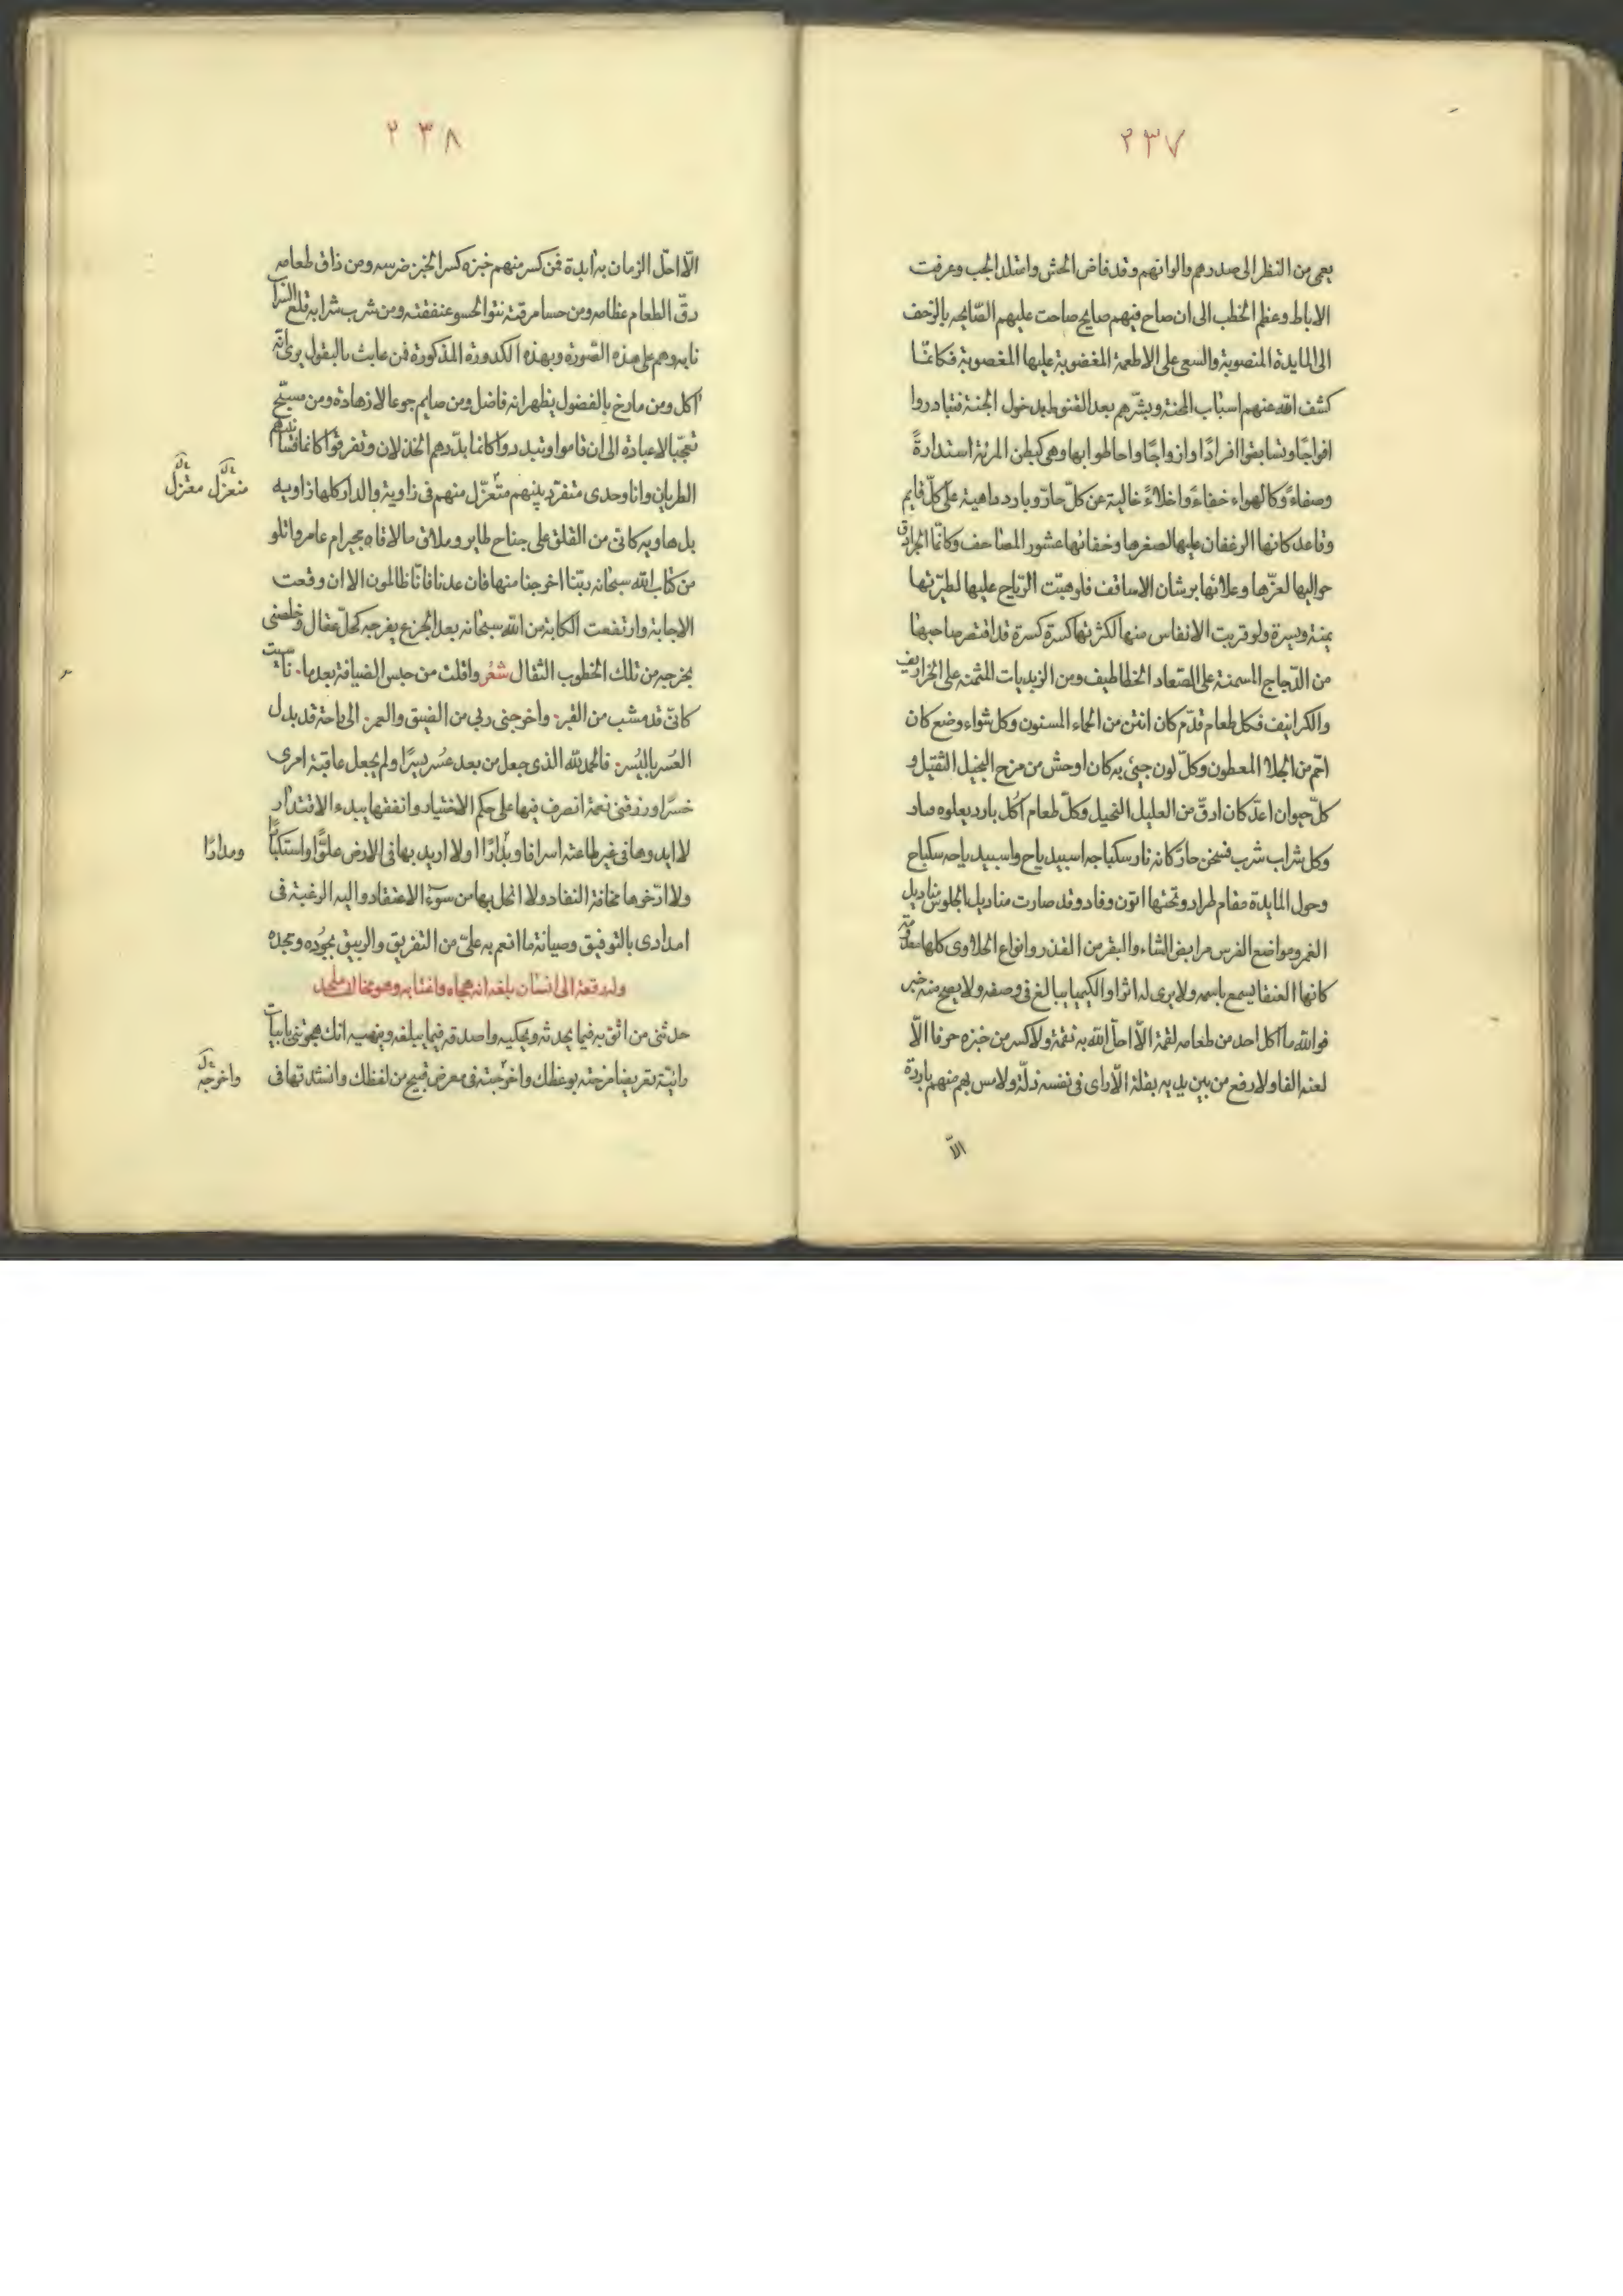 ٢٣٧
يعمى من النظر الى صدرهم والوانهم وقد فاض الحش واشتد الجب وعرقت
الاباط وعظم الخطب الى ان صاح فيهم صايح صاحت عليهم الصّايحه بالزحف
الى المايدة المنصوبة والسعى على الاطعمة المغضوبة عليها المغصوبة فكانما
كشف الله عنهم اسباب المحنة وبشّرهم بعد القنوط بدخول الجنة فتبادروا
افواجًا وتسابقوا افرادًا وازواجًا واحاطوا بها وهى كبطن المرئة استدارةً
وصفاءً وكالهواء خفاءً واخلاءً خالية عن كلّ حارّ وبارد داهية على كلّ قايم
وقاعد كانها الرغفان عليها لصغرها وخفائها عشور المصاحف وكانّما الجرادق
حواليها لعزّها وعلائها برشان الاساقف فلو هبّت الرّياح عليها لطيّرتها
يمنة ويسرة ولو قربت الانفاس منها لكثرتها كسرة كسرة قد اقتصر صاحبها
من الدّجاج المسمنة على الصّعاد الخطاطيف ومن الزيديات المثمنة على الخراريف
والكرانيف فكل طعام قدّم كان انتن من الحماء المسنون وكل شواء وضع كان
اتم من الجلد المعطون وكلّ لون جيئ به كان اوحش من مزح البخيل الثقيل و
كلّ حيوان اعدّ كان ادقّ من العليل النحيل وكلّ طعام اكل بارد يعلوه رماد
وكل شراب شرب فسخن حارّ كانه نار سكباجه اسبيدباج واسبيدباجه سكباج
وحول المايدة مقام طراد وتحتها اتون وقاد وقد صارت مناديل الجلوس مناديل
الغمر ومواضع الفرس مرابض الشاء والبقر من القذر وانواع الحلاوى كلها معدومة
كانها العنقا يسمع باسمه ولا يرى له اثرا والكيميا يبالغ فى وصفه ولا يصح منه خبر
فوالله ما اكل احد من طعامه لقمة الّا احلّ الله به نقمة ولا كسر من خبزه حرفا الّا
لعنه الفا ولا رفع من بين يديه بقلة الّا راى فى نفسه ذلّة ولا مس بهم منهم باردة
الّا
٢٣٨
الّا احلّ الزمان به ابدة فمن كسر منهم خبزه كسر الخبز ضرسه ومن ذاق طعامه
دقّ الطعام عظامه ومن حسا مرقته نتوا الحسو عنفقته ومن شرب شرابه قلع الشراب
نابه وهم على هذه الصّورة وبهذه الكدورة المذكورة فمن عابث بالبقول يرى انّه
اكل ومن مارخ بالفضول يظهر انه فاضل ومن صايم جوعا لا زهادة ومن مسبّح
تعجّبا لا عبادة الى ان قاموا وتبدروا كانما بدّدهم الخذلان وتفرقوا كانما فسّا بينهم
الظربان وانا وحدى متفرد بينهم متعزّل منهم فى زاوية والدار كلها زاويه
متعزل معتزل
بل هاويه كانّى من القلق على جناح طاير وملاق ما لاقاه مجير ام عامر واتلو
من كتاب الله سبحانه ربّنا اخرجنا منها فان عدنا فانّا ظالمون الا ان وقعت
الاجابة وارتفعت الكابة من الله سبحانه بعد الجزع بفرجه كحلّ عقال وخلصنى
بخرجه من تلك الخطوب الثقال شعر وافلت من حبس الضيافة بعد ما٠ ناسيت
كانّى قد مشب من القبر٠ واخرجنى ربى من الضيق والعمر٠ الى راحة قد بدل
العُسر باليُسر٠ فالحمد لله الذى جعل من بعد عسر يسرًا ولم يجعل عاقبة امرى
خسرًا ورزقنى نعمة اتصرف فيها على حكم الاختيار وانفقها بيد الاقتدار
لا ابدوها فى غير طاعته اسرافا وبدارًا ولا اريد بها فى الارض علوًّا واستكبارًا
ومدارًا
ولا ادّخرها مخافة النفاد ولا اتحل بها من سوء الاعتقاد واليه الرغبة فى
امدادى بالتوفيق وصيانة ما انعم به علىّ من التفريق والرييق بجوده ومجده
وله رقعة الى انسان بلغه انه هجاه واغتابه وهو مخالف ملحد
حدثنى من اثق به فيما يحدثه ويحكيه واصدقه فيما يبلغه وينهيه انك هجوتنى بابيات
رايتّه تعريضا مزحته بوعظك واخرجته فى معرض قبيح من لفظك وانشدتها فى
واخرجه